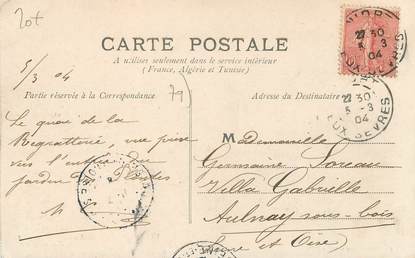 20+
NIORT
22 30
5 - 3
04
DEUX SEVRES
CARTE POSTALE
A utiliser seulement dans le service intérieur
(France, Algérie et Tunisie)
5/3 04
79
Partie réservée à la Correspondance
Adresse du Destinataire
22 30
5 - 3
04
DEUX SEVRES
Le quai de la
Regratterie, vue prise
vers l'entrée du
Jardin des Plantes
Mademoiselle
Germaine Loreau
Villa Gabrielle
Aulnay sous-bois
(Seine et Oise)